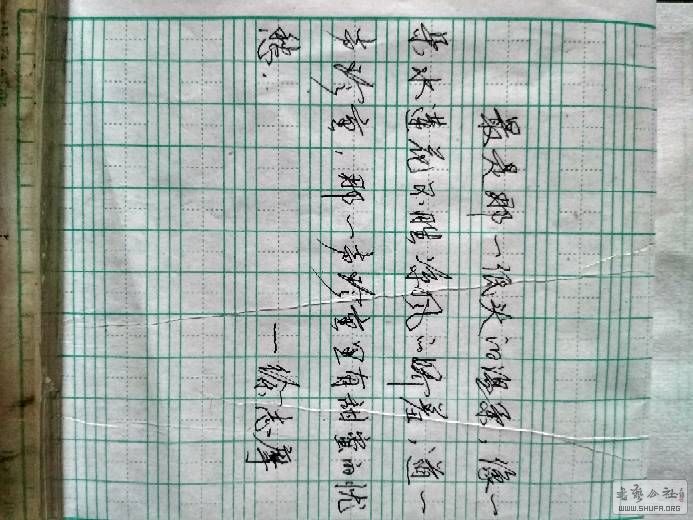 最是那一低头的温柔，像一
朵水莲花不胜凉风的娇羞，道一
声珍重，那一声珍重里有甜蜜的忧
愁.
—徐志摩
书艺公社
WWW.SHUFA.ORG